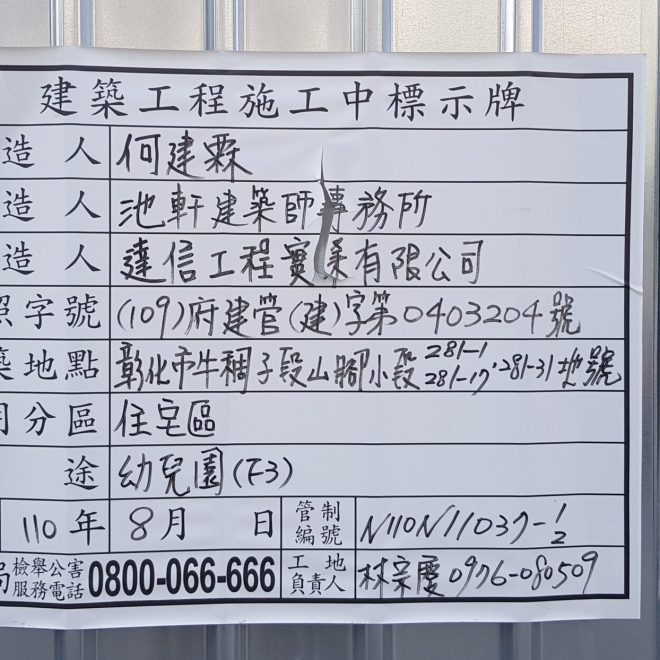 建築工程施工中標示牌
造人 何建霖
造人 池軒建築師事務所
造人 達信工程實業有限公司
照字號 (109)府建管(建)字第0403204號
築地點 彰化市牛稠子段山腳小段281-1、281-17、281-31地號
用分區 住宅區
途 幼兒園(F3)
110年 8月 日 管制編號 N110N11037-1/2
局 檢舉公害服務電話 0800-066-666 工地負責人 林宗慶 0976-080509